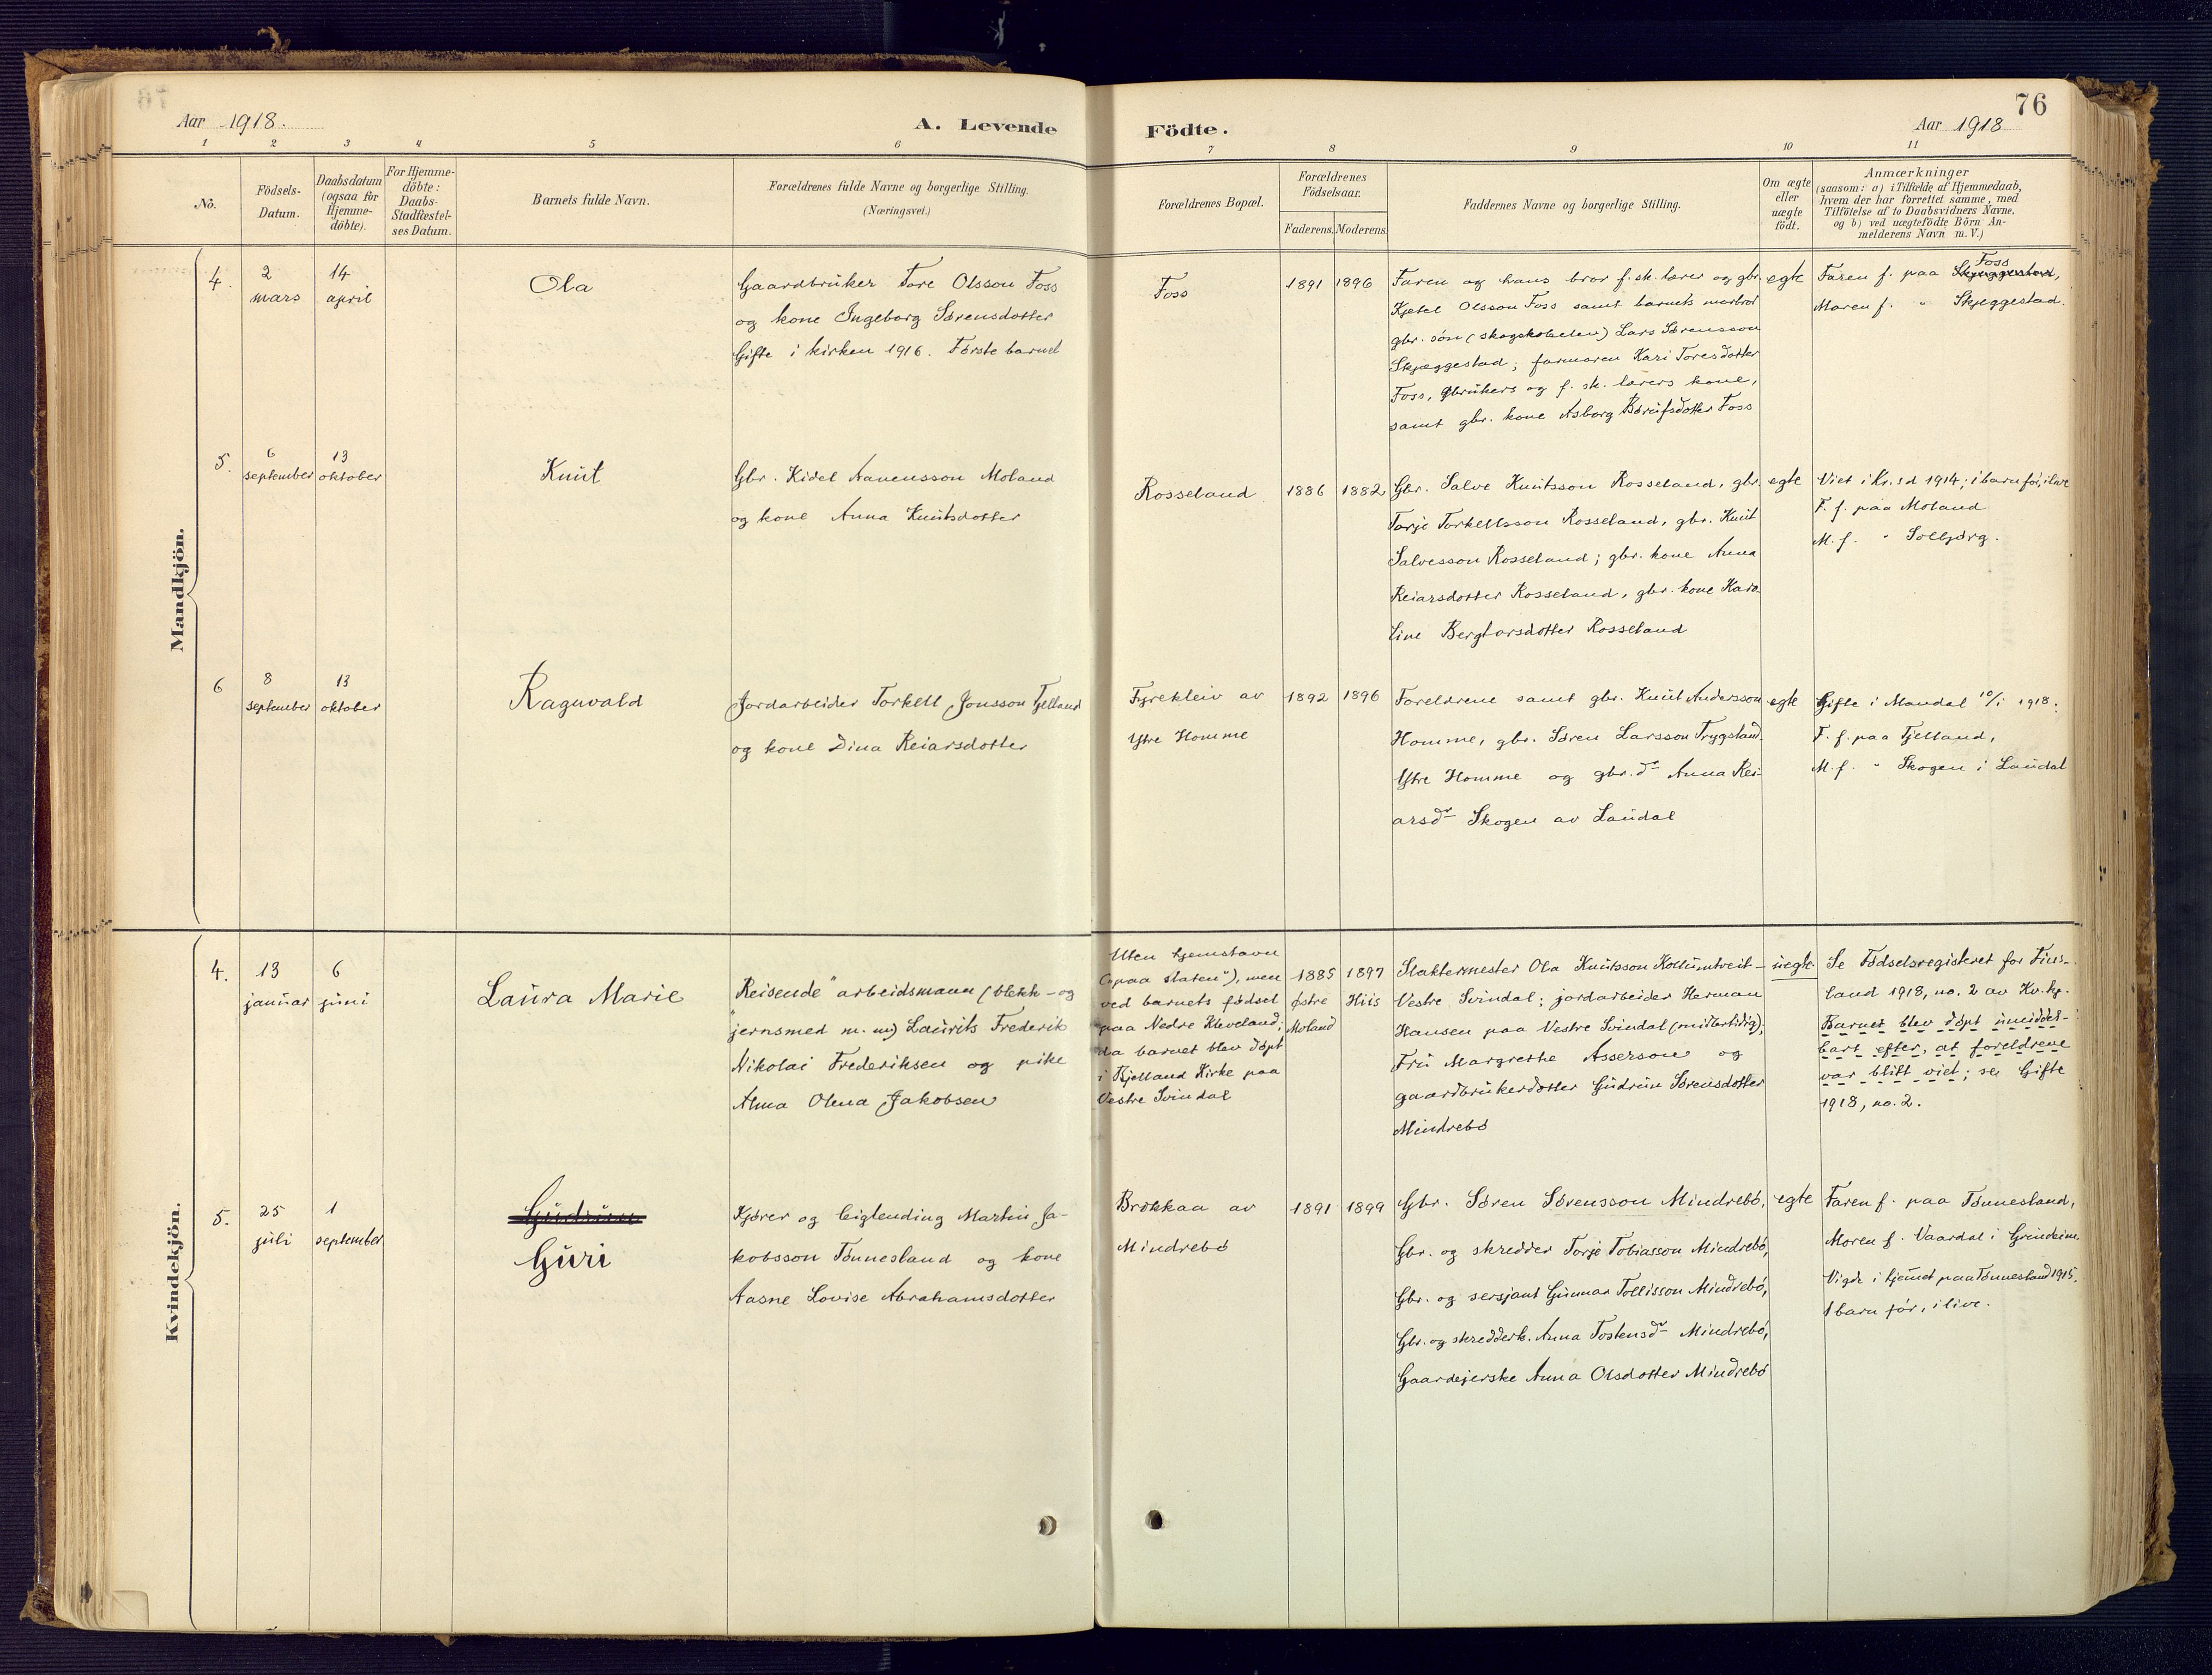 76
Aar 1918.
A. Levende
Födte.
Aar 1918
1 2 3 4 5 6 7 8 9 10 11
No.
Födsels-
Datum.
Daabsdatum
(ogsaa for
Hjemme-
döbte).
For Hjemme-
döbte:
Daabs-
Stadfæstel-
ses Datum.
Barnets fulde Navn.
Forældrenes fulde Navne og borgerlige Stilling.
(Næringsvei.)
Forældrenes Bopæl.
Forældrenes
Födselsaar.
Faderens. Moderens.
Faddernes Navne og borgerlige Stilling.
Om ægte
eller
uægte
födt.
Anmærkninger
(saasom: a) i Tilfælde af Hjemmedaab,
hvem der har forrettet samme, med
Tilföielse af to Daabsvidners Navne.
og b) ved uægtefödte Börn An-
melderens Navn m. V.)
Mandkjön.
4.
2
mars
14
april
Ola
Gaardbruker Tore Olsson Foss
og kone Ingeborg Sørensdotter
Gifte i kirken 1916. Første barnet
Foss
1891 1896
Faren og hans bror f. sk. lærer og gbr.
Kjetel Olsson Foss samt barnets morbror
gbr. søn (skogskolelev) Lars Sørensson
Skjæggestad; farmoren Kari Toresdotter
Foss, gbrukers og f. sk. lærers kone,
samt gbr. kone Asborg Foss
egte
Foss
Faren f. paa Skjeggestad,
Moren f. " Skjeggestad.
5.
6
september
13
oktober
Knut
Gbr. Kidel Aanensson Moland
og kone Anna Knutsdotter
Rosseland
1886 1882
Gbr. Salve Knutsson Rosseland, gbr.
Tarje Torkellsson Rosseland, gbr. Knut
Salvesson Rosseland; gbr. kone Anna
Reiarsdotter Rosseland, gbr. kone Karo
line Bergtorsdotter Rosseland
egte
Viet i Kr.sd 1914; 1 barn før, i live
F. f. paa Moland
M. f. " Solbjørg.
6
8
september
13
oktober
Ragnvald
Jordarbeider Torkell Jonsson Tjelland
og kone Dina Reiarsdotter
Fyrekleiv av
Ytre Homme
1892 1896
Foreldrene samt gbr. Knut Andersson
Homme, gbr. Søren Larsson Trygsland
Ytre Homme og gbr. dr Anna Rei-
arsdr Skogen av Laudal
egte
Gifte i Mandal 10/1 1918.
F. f. paa Tjelland,
M. f. " Skogen i Laudal
Kvindekjön.
4.
13
januar
6
juni
Laura Marie
"Reisende" arbeidsmann (blekk- og
jernsmed m. m) Laurits Frederik
Nikolai Frederiksen og pike
Alma Olena Jakobsen
Uten hjemstavn
("paa staten"), men
ved barnets fødsel
paa Nedre Kleveland;
da barnet blev døpt
i Kjelland Kirke paa
Vestre Svindal
1885
Østre
Moland
1897
Hiis
Slaktermester Ola Knutsson Kollumtveit -
Vestre Svindal; jordarbeider Herman
Hansen paa Vestre Svindal (midlertidig);
Fru Margrethe Asserson og
gaardbrukerdotter Gudrun Sørensdotter
Mindrebö
uegte
Se Fødselsregisteret for Fins-
land 1918, no. 2 av Kv. kj.
Barnet blev døpt umiddel-
bart efter, at foreldrene
var blitt viet; se Gifte
1918, no. 2.
5.
25
juli
1
september
Gudrun
Guri
Kjører og leiglending Martin Ja-
kobsson Tønnesland og kone
Aasne Lovise Abrahamsdotter
Brokkaa av
Mindrebö
1891 1899
Gbr. Søren Sørensson Mindrebö,
Gbr. og skredder Torje Tobiasson Mindrebö,
Gbr. og sersjant Gunnar Tollisson Mindrebö,
Gbr. og skredderk. Anna Tostensdr Mindrebö,
Gaardejerske Anna Olsdotter Mindrebö
egte
Faren f. paa Tønnesland,
Moren f. Vaardal i Grindeim
Vigde i hjemet paa Tønnesland 1915.
1 barn før, i live.